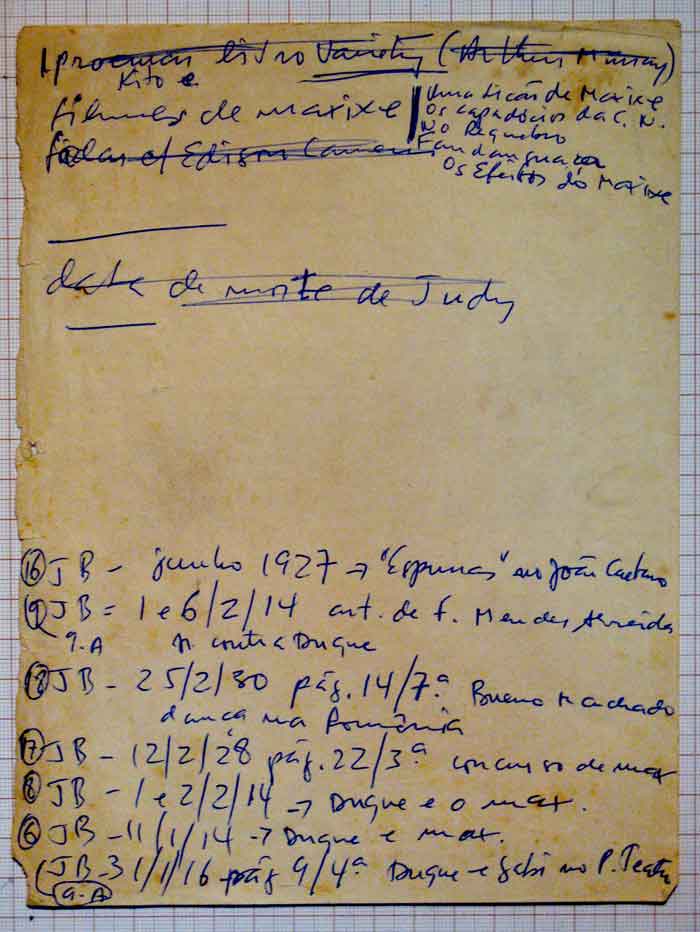 procurar livro Variety (Arthur Murray)
Kito e
filmes de maxixe
Uma lição de Maxixe
Os capadócios da C. N.
No Requebro
Fandanguassú
Os Efeitos do Maxixe
data de morte de Judy
16 JB - junho 1927 → "Espumas" no João Caetano
9 JB = 1 e 6/2/14 art. de f. Mendes Almeida
9.A contra Duque
18 JB - 25/2/30 pág. 14/7ª Bueno Machado
dança na Romênia
17 JB - 12/2/28 pág. 22/3ª concurso de max
8 JB - 1 e 2/2/14 → Duque e o max.
6 JB - 11/1/14 → Duque e max.
JB - 31/1/16 - pág 9/4ª Duque e Gabi no P. Teatro
9-A